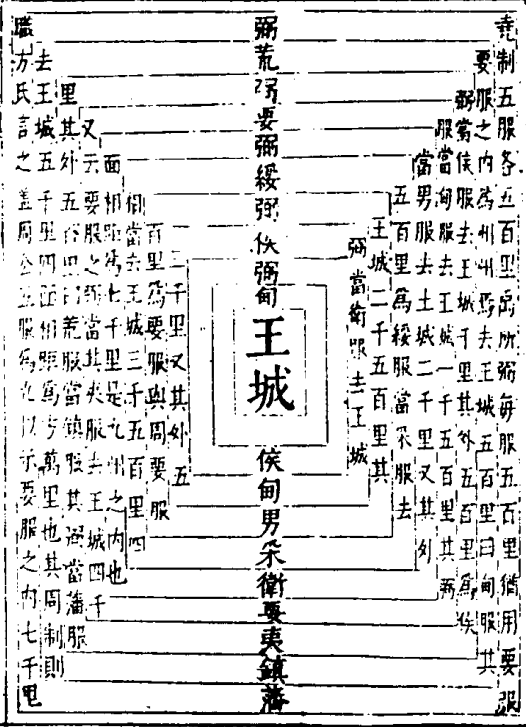 堯制五服各五百里禹所弼每服五百里猶用要服
要服之内為州州焉去王城五百里曰甸服其
弼當侯服去王城千里其外五百里為侯
服當甸服去王城一千五百里其弼
當男服去王城二千里又其外
五百里為綏服當采服去
王城二千五百里其
弼當衛服去王城
弼荒弼要弼綏弼侯弼甸
王城
侯甸男采衛要夷鎮藩
三千里又其外五
百里為要服與周要服
相當去王城三千五百里四
面相距為七千里是九州之内也
又云要服之弼當其夷服去王城四千
里其外五百里曰荒服當鎮服其弼當藩服
去王城五千里四面相距為方萬里也其周制則
職方氏言之盖周公五服為九以要服之内七千里